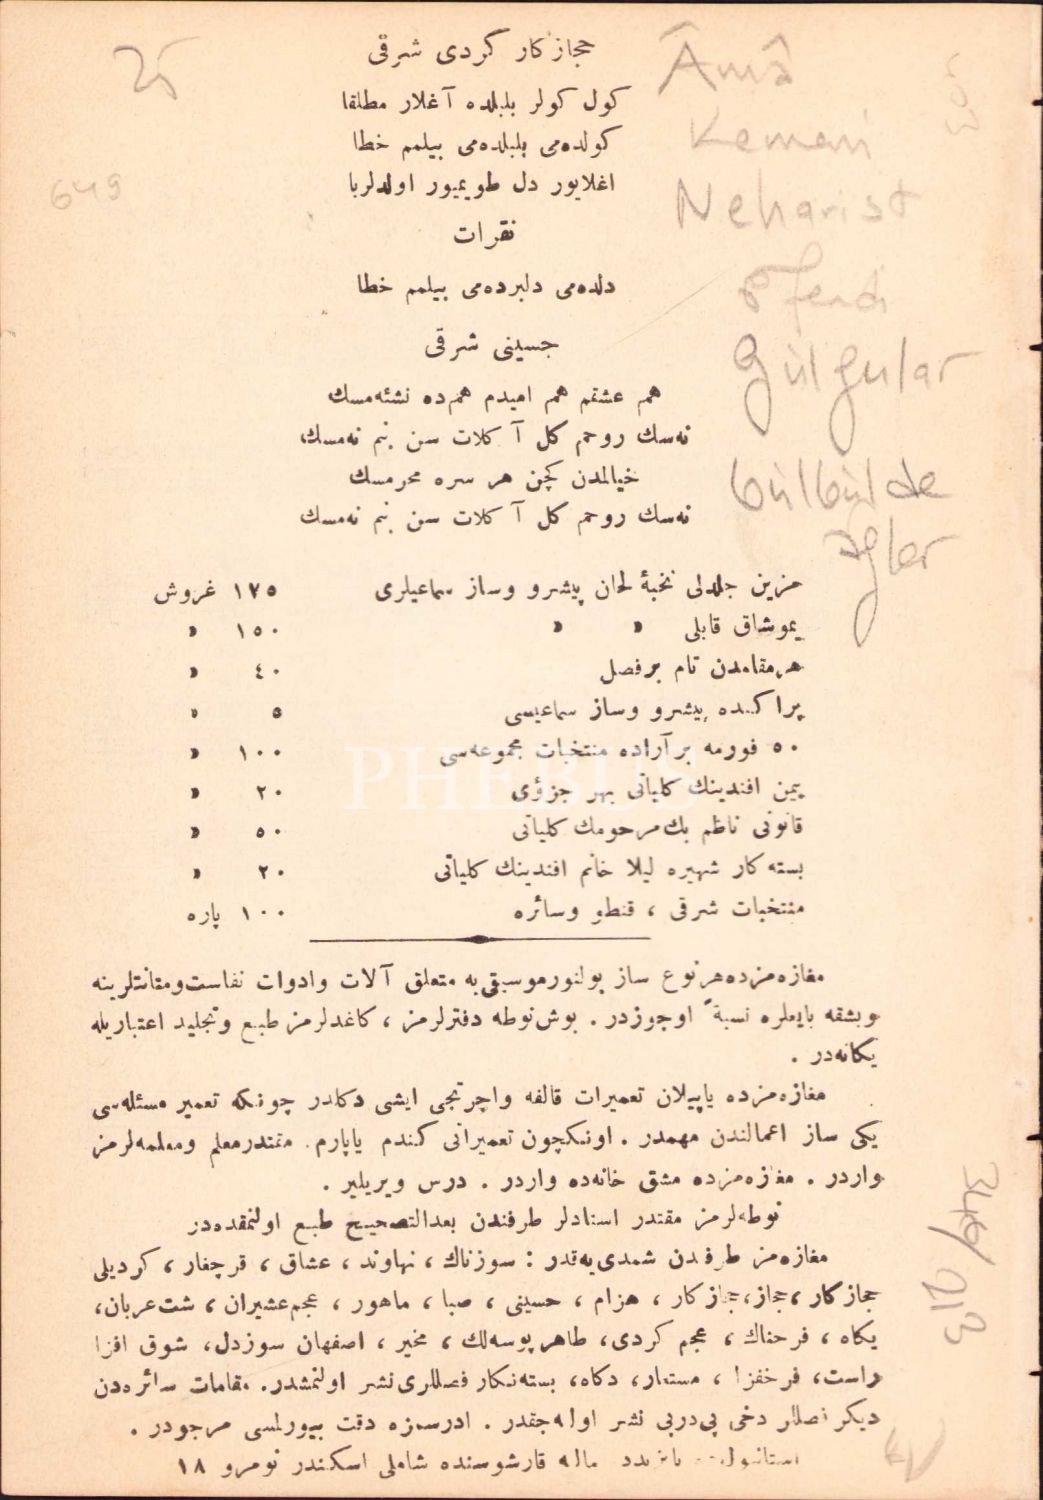 حجازكار كردى شرقى
كول كولر بلبلده آغلار مطلقا
كولده‌مى بلبلده‌مى بيلمم خطا
اغلايور دل طويميور اولدلربا
نقرات
دلده‌مى دلبرده‌مى بيلمم خطا
حسينى شرقى
هم عشقم هم اميدم همده نشئه‌مسك
نه‌سك روحم كل آ كلات سن بنم نه‌مسك
خيالمدن كچن هر سره محرمسك
نه‌سك روحم كل آ كلات سن بنم نه‌مسك
مزين جلدلى نخبهٔ الحان پيشرو وساز سماعيلرى ١٧٥ غروش
يموشاق قابلى » » ١٥٠ »
هرمقامدن تام برفصل ٤٠ »
پراكنده پيشرو وساز سماعيسى ٥ »
٥٠ فورمه برآراده منتخبات مجموعه‌سى ١٠٠ »
يمن افندينك كلياتى بهر جزؤى ٢٠ »
قانونى ناظم بك مرحومك كلياتى ٥٠ »
بسته‌كار شهيره ليلا خانم افندينك كلياتى ٢٠ »
منتخبات شرقى ، قنطو وسائره ١٠٠ پاره
مغازه‌مزده هرنوع ساز بولنور موسيقى‌يه متعلق آلات وادوات نفاست ومتانتلرينه
وبشقه بايعلره نسبةً اوجوزدر . بوش نوطه دفترلرمز ، كاغدلرمز طبع وتجليد اعتباريله
يكانه‌در .
مغازه‌مزده ياپيلان تعميرات قالفه واچرتجى ايشى دكلدر چونكه تعمير مسئله‌سى
يكى ساز اعمالندن مهمدر . اونكچون تعميراتى كندم ياپارم . مقتدر معلم ومعلمه‌لرمز
واردر . مغازه‌مزده مشق خانه‌ده واردر . درس ويريلير .
نوطه‌لرمز مقتدر استادلر طرفندن بعدالتصحيح طبع اولنمقده‌در
مغازه‌مز طرفندن شمدى‌يه‌قدر : سوزناك ، نهاوند ، عشاق ، قرچغار ، كرديلى
حجازكار ، حجاز ، حجازكار ، هزام ، حسينى ، صبا ، ماهور ، عجم‌عشيران ، شت‌عربان،
يكاه ، فرحناك ، عجم كردى، طاهر پوسه‌لك ، مخير ، اصفهان سوزدل، شوق افزا
راست، فرخفزا ، مستعار، دكاه، بسته‌نكار فصللرى نشر اولنمشدر. مقامات سائره‌دن
ديكر فصللر دخى پى‌درپى نشر اوله‌جقدر . ادرسمزه دقت بيورلمسى مرجودر .
استانبولده بايزيدده ماليه قارشوسنده شاملى اسكندر نومرو ١٨
25
649
Âmâ
Kemani
Neharist
Efendi
Gül gular
bülbülde
ağlar
PHEBUS